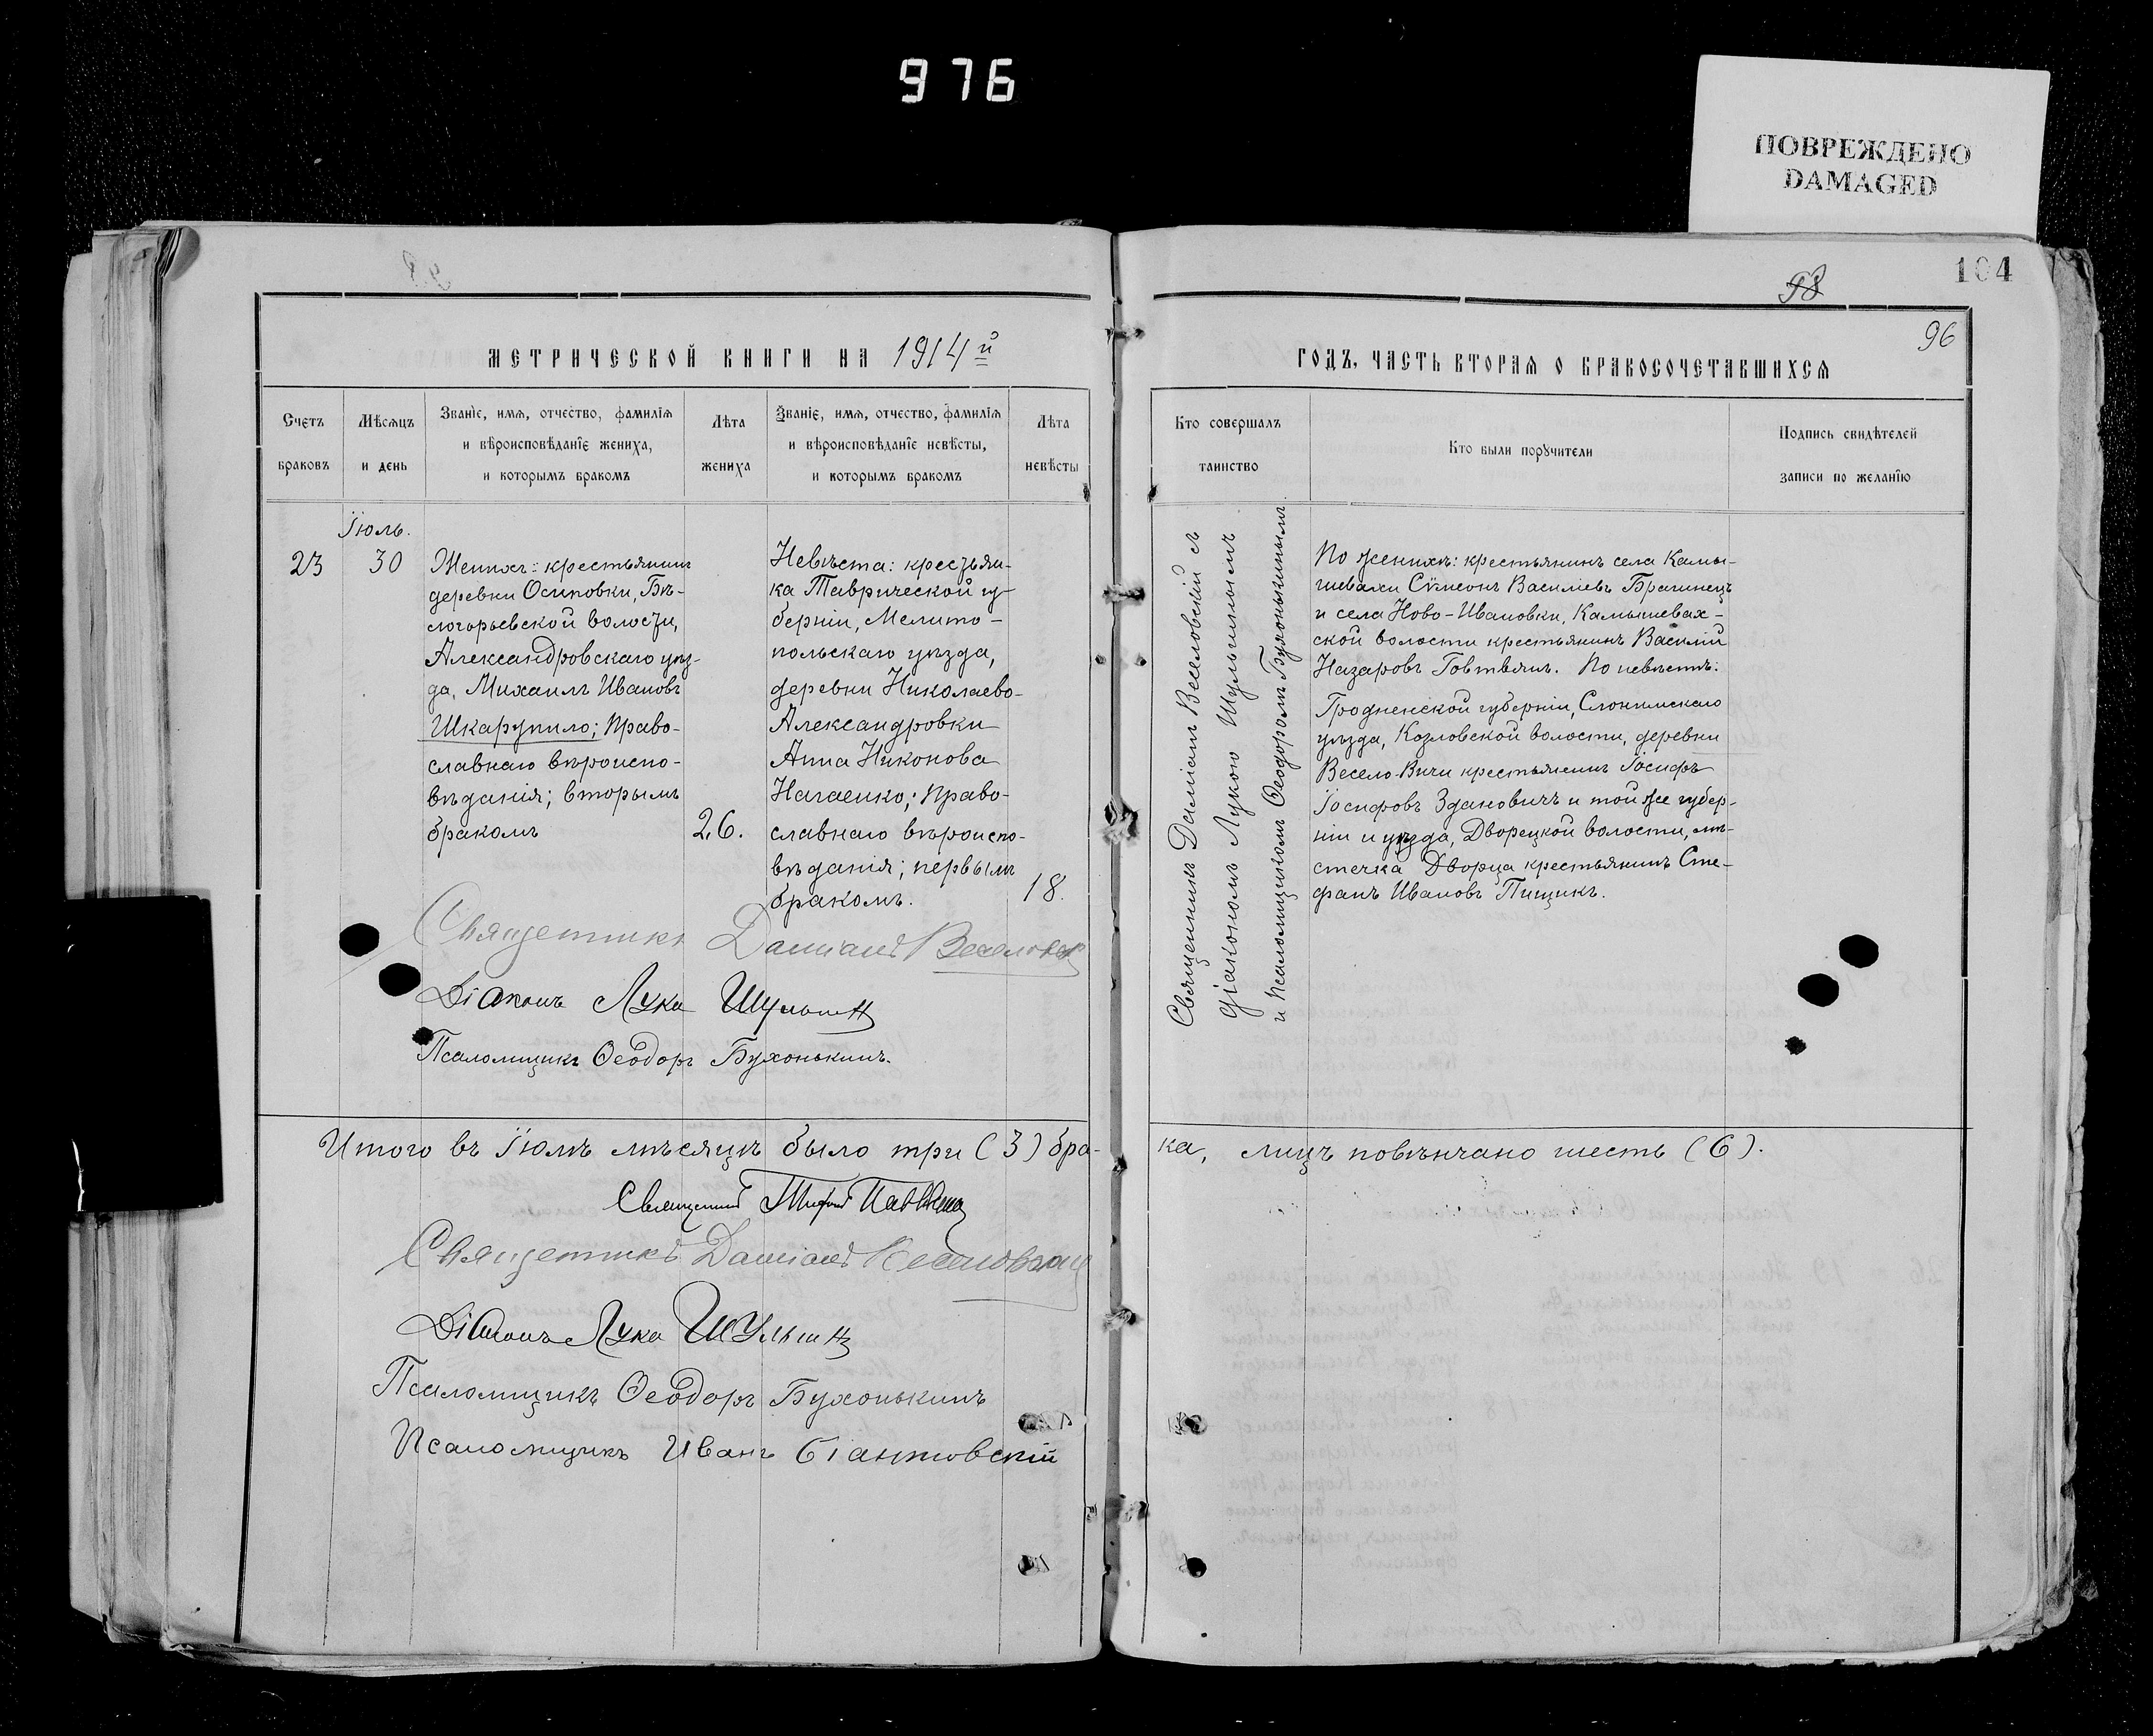 976
ПОВРЕЖДЕНО
DAMAGED
104
98
96
МЕТРИЧЕСКОЙ КНИГИ НА 1914й
ГОДЪ, ЧАСТЬ ВТОРАЯ О БРАКОСОЧЕТАВШИХСЯ
Счетъ браковъ
Мѣсяцъ и день
Званіе, имя, отчество, фамилія
и вѣроисповѣданіе жениха,
и которымъ бракомъ
Лѣта жениха
Званіе, имя, отчество, фамилія
и вѣроисповѣданіе невѣсты,
и которымъ бракомъ
Лѣта невѣсты
Кто совершалъ
таинство
Кто были поручители
Подпись свидѣтелей
записи по желанію
Іюль.
23
30
Женихъ: крестьянинъ
деревни Осиповки, Бѣ-
логорьевской волости,
Александровскаго уѣз-
да, Михаилъ Ивановъ
Шкарупило; право-
славнаго вѣроиспо-
вѣданія; вторымъ
бракомъ
26.
Невѣста: крестьян-
ка Таврической гу-
берніи, Мелито-
польскаго уѣзда,
деревни Николаево-
Александровки
Анна Никонова
Нагаенко; право-
славнаго вѣроиспо-
вѣданія; первымъ
бракомъ.
18.
Священникъ Даміанъ Веселовскій съ
діакономъ Лукою Шульгинымъ
и псаломщикомъ Ѳеодоромъ Бухонькинымъ
По женихѣ: крестьянинъ села Камы-
шевахи Сѵмеонъ Василіевъ Брагинецъ
и села Ново-Ивановки, Камышевах-
ской волости крестьянинъ Василій
Назаровъ Говтвянъ. По невѣстѣ:
Гродненской губерніи, Слонимскаго
уѣзда, Козловской волости, деревни
Весело-Вичи крестьянинъ Іосифъ
Іосифовъ Здановичъ и той же губер-
ніи и уѣзда, Дворецкой волости, мѣ-
стечка Дворца крестьянинъ Сте-
фанъ Ивановъ Пищикъ.
Священникъ Даміанъ Веселовскій
Діаконъ Лука Шульгинъ
Псаломщикъ Ѳеодоръ Бухонькинъ.
Итого въ Іюлѣ мѣсяцѣ было три (3) бра-
ка, лицъ повѣнчано шесть (6).
Священникъ
Священникъ Даміанъ Веселовскій
Діаконъ Лука Шульгинъ
Псаломщикъ Ѳеодоръ Бухонькинъ
Псаломщикъ Иванъ